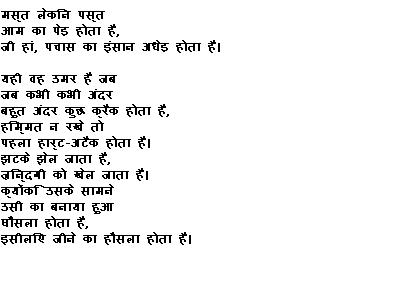 मस्त लेकिन पस्त
आम का पेड़ होता है,
जी हां, पचास का इंसान अधेड़ होता है।
यही वह उमर है जब
जब कभी कभी अंदर
बहुत अंदर कुछ क्रैक होता है,
हिम्मत न रखे तो
पहला हार्ट-अटैक होता है।
झटके झेल जाता है,
ज़िन्दगी को खेल जाता है।
क्योंकि उसके सामने
उसी का बनाया हुआ
घौंसला होता है,
इसीलिए जीने का हौसला होता है।